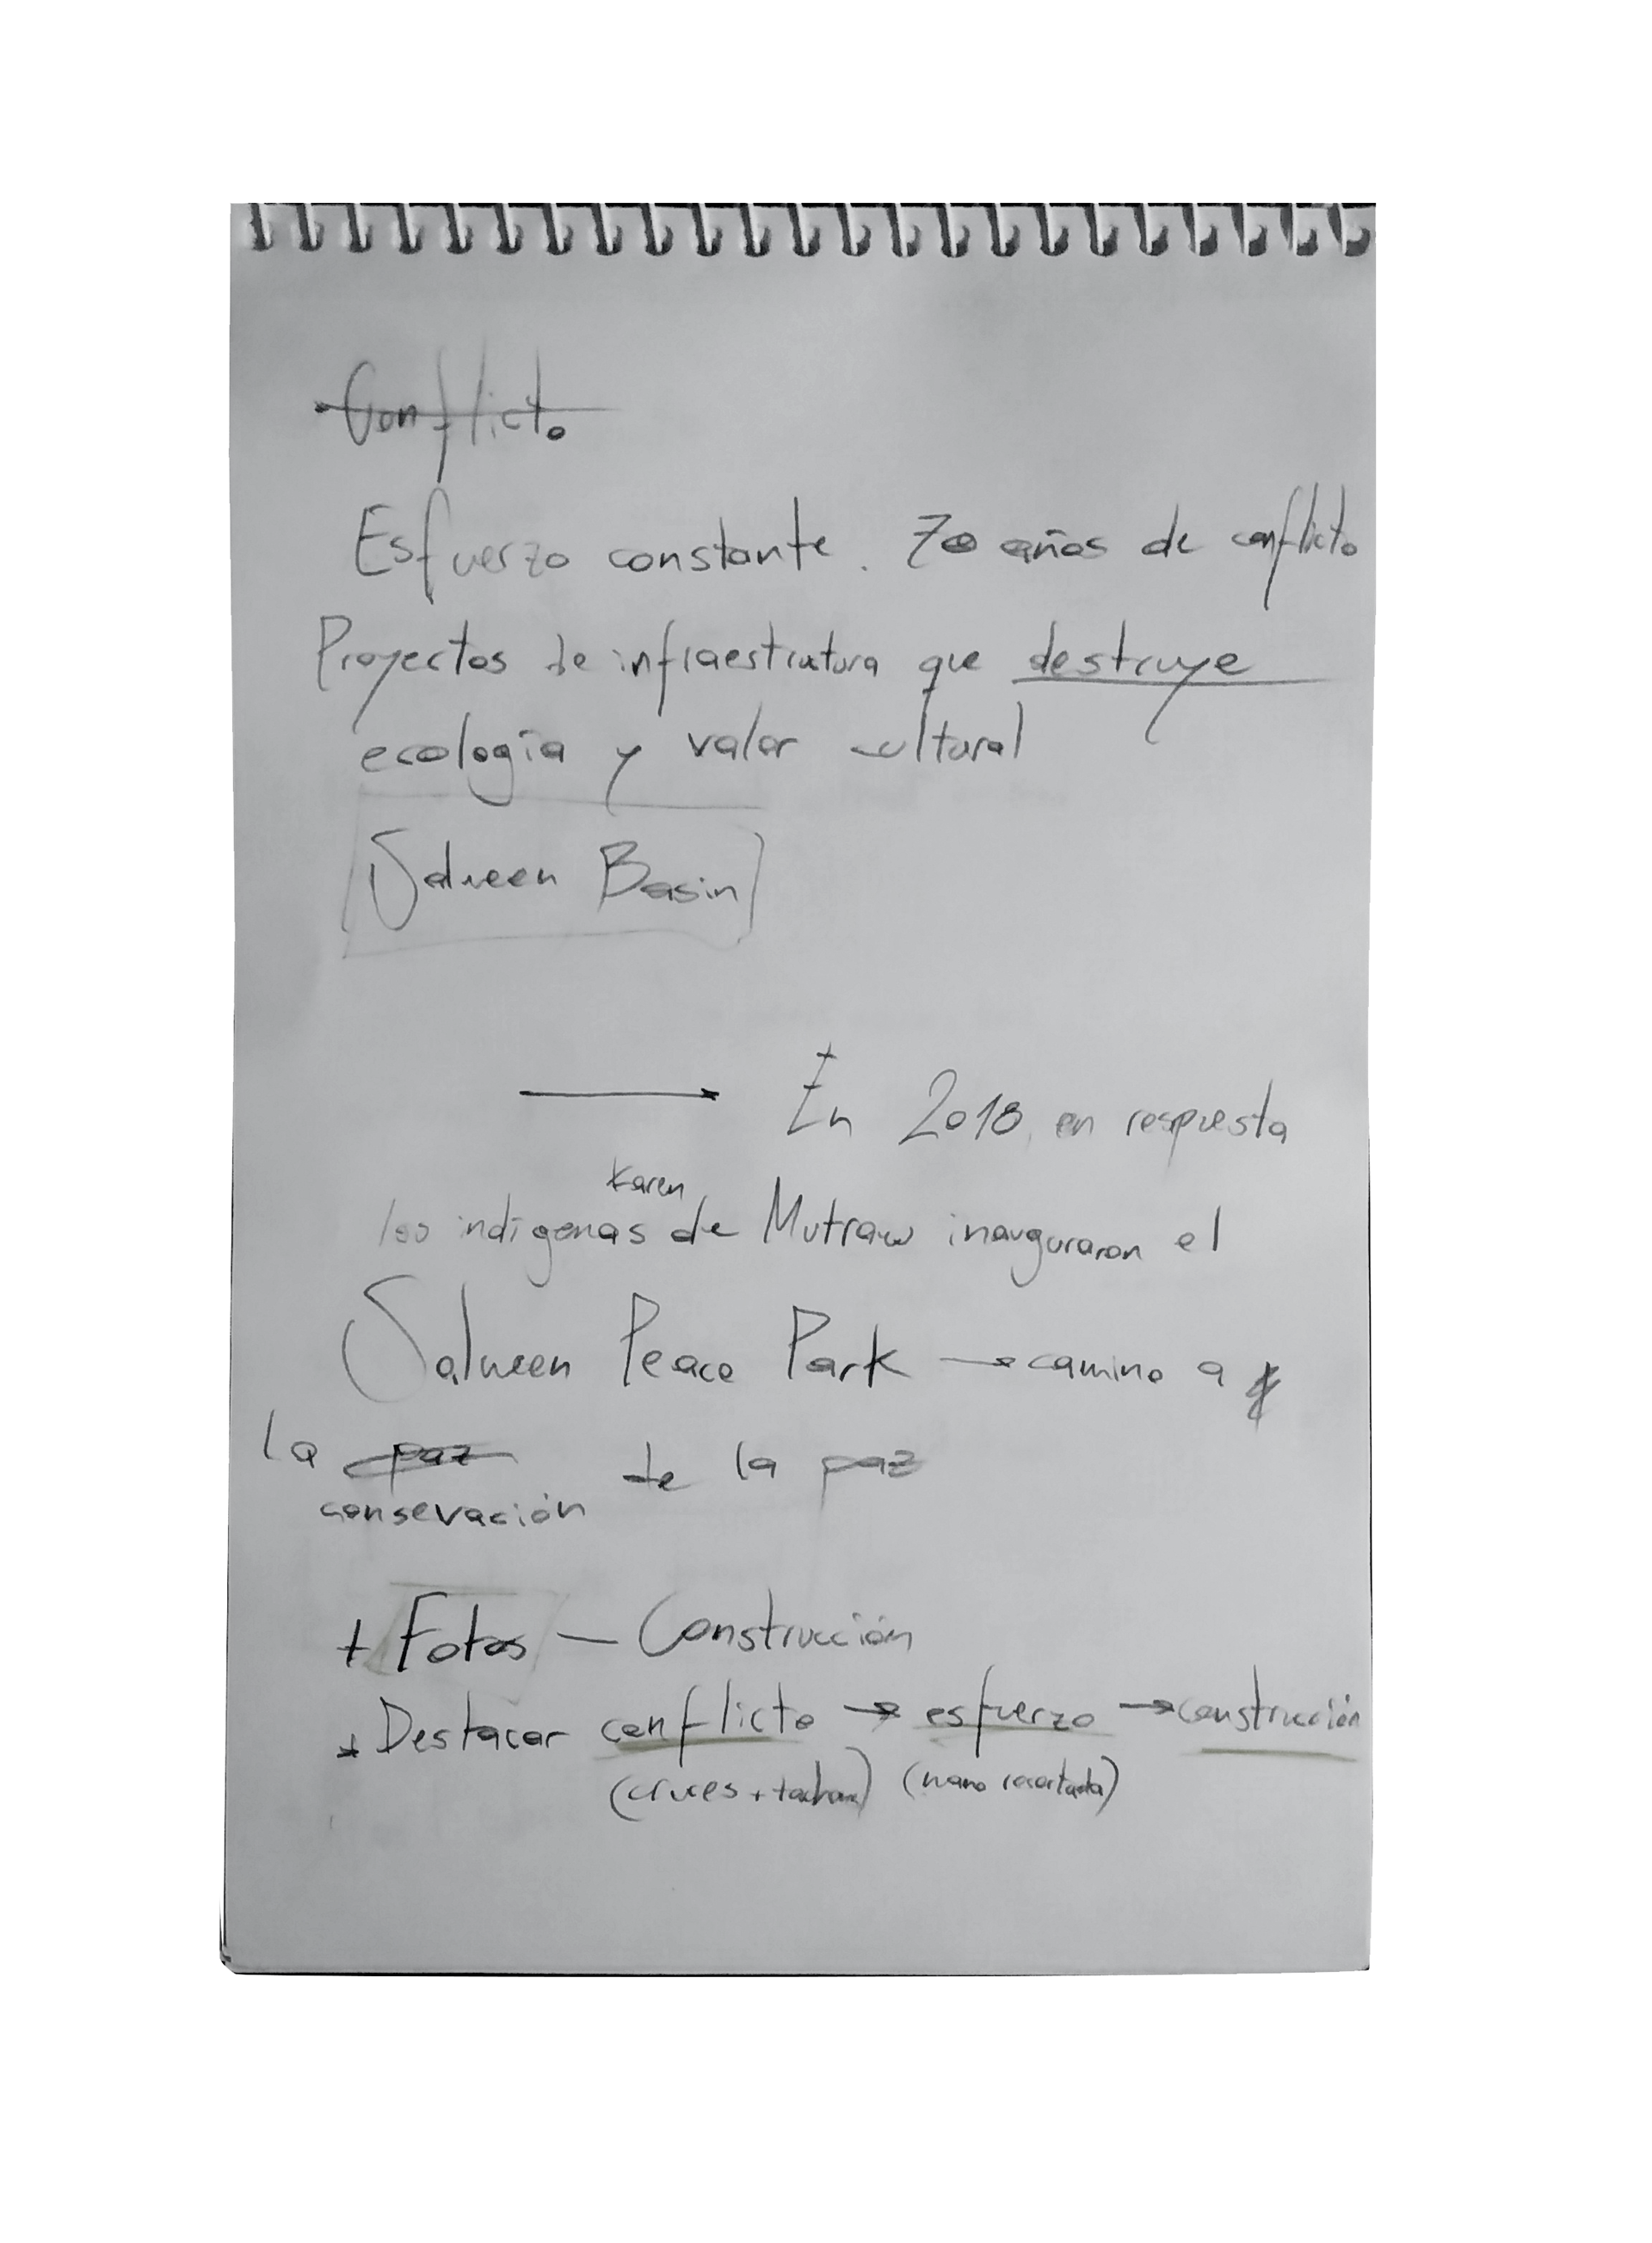 Conflicto
Esfuerzo constante. 70 años de conflicto
Proyectos de infraestructura que destruye
ecología y valor cultural
Salween Basin
→ En 2018, en respuesta
Karen
los indígenas de Mutraw inauguraron el
Salween Peace Park → camino a
la paz de la paz
consevación
+ Fotos — Construcción
+ Destacar conflicto → esfuerzo → construcción
(cruces + ) (mano recortada)